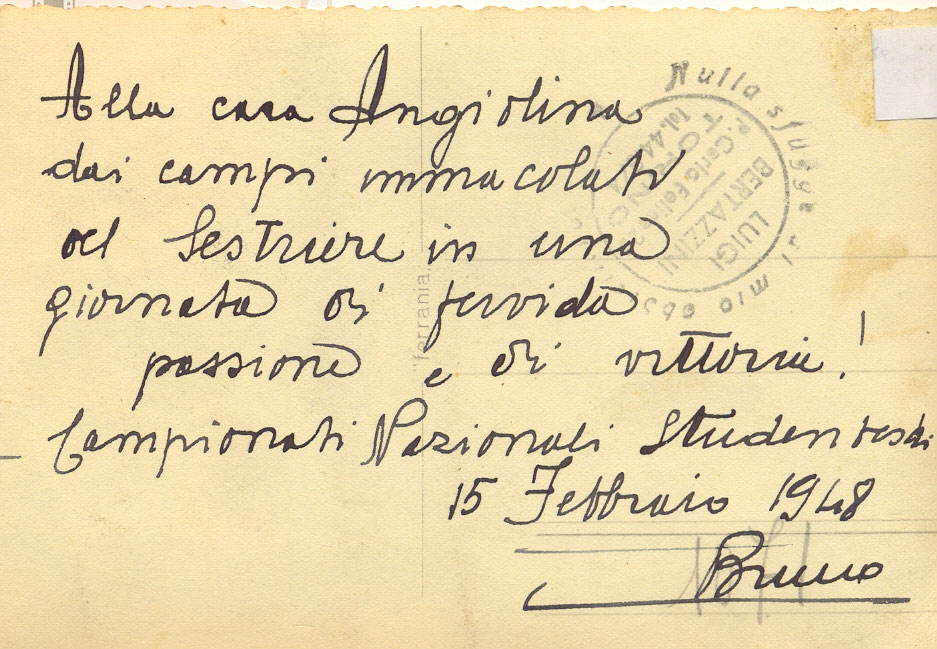 Alla cara Angiolina
dai campi immacolati
del Sestriere in una
giornata di fervida
passione e di vittoria!
Campionati Nazionali Studenteschi
15 Febbraio 1948
Bruno
Nulla sfugge al mio
LUIGI
BERTAZZINI
P. Carlo Feli
TORINO
"ferrania